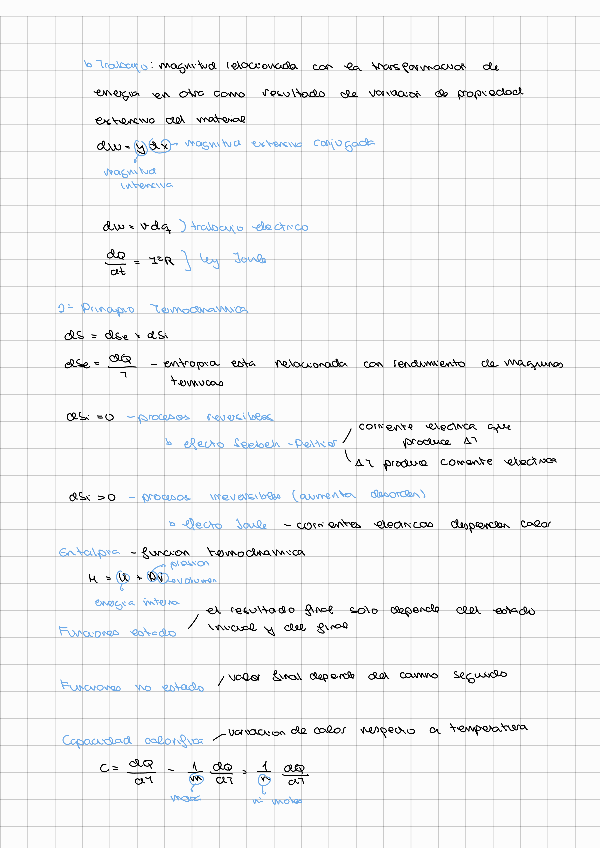 ↳ Trabajo: magnitud relacionada con la transformacion de
energia en otra como resultado de variacion de propiedad
extensiva del material
dw = y dx → magnitud extensiva conjugada
magnitud
intensiva
dw = v dq ) trabajo electrico
dQ/dt = I²R ] ley Joule
2º Principio Termodinamica
dS = dSe + dSi
dSe = dQ/T - entropia esta relacionada con rendimiento de maquinas
termicas
dSi = 0 - procesos reversibles
corriente electrica que
produce ΔT
↳ efecto Seebeck - Peltier
ΔT produce corriente electrica
dSi > 0 - procesos irreversibles (aumenta desorden)
↳ efecto Joule - corrientes electricas desprenden calor
Entalpia - funcion termodinamica
presion
H = U + PV volumen
energia interna
el resultado final solo depende del estado
inicial y del final
Funciones estado
Funciones no estado / valor final depende del camino seguido
Capacidad calorifica / variacion de calor respecto a temperatura
C = dQ/dT - 1/m dQ/dT = 1/n dQ/dT
masa nº moles